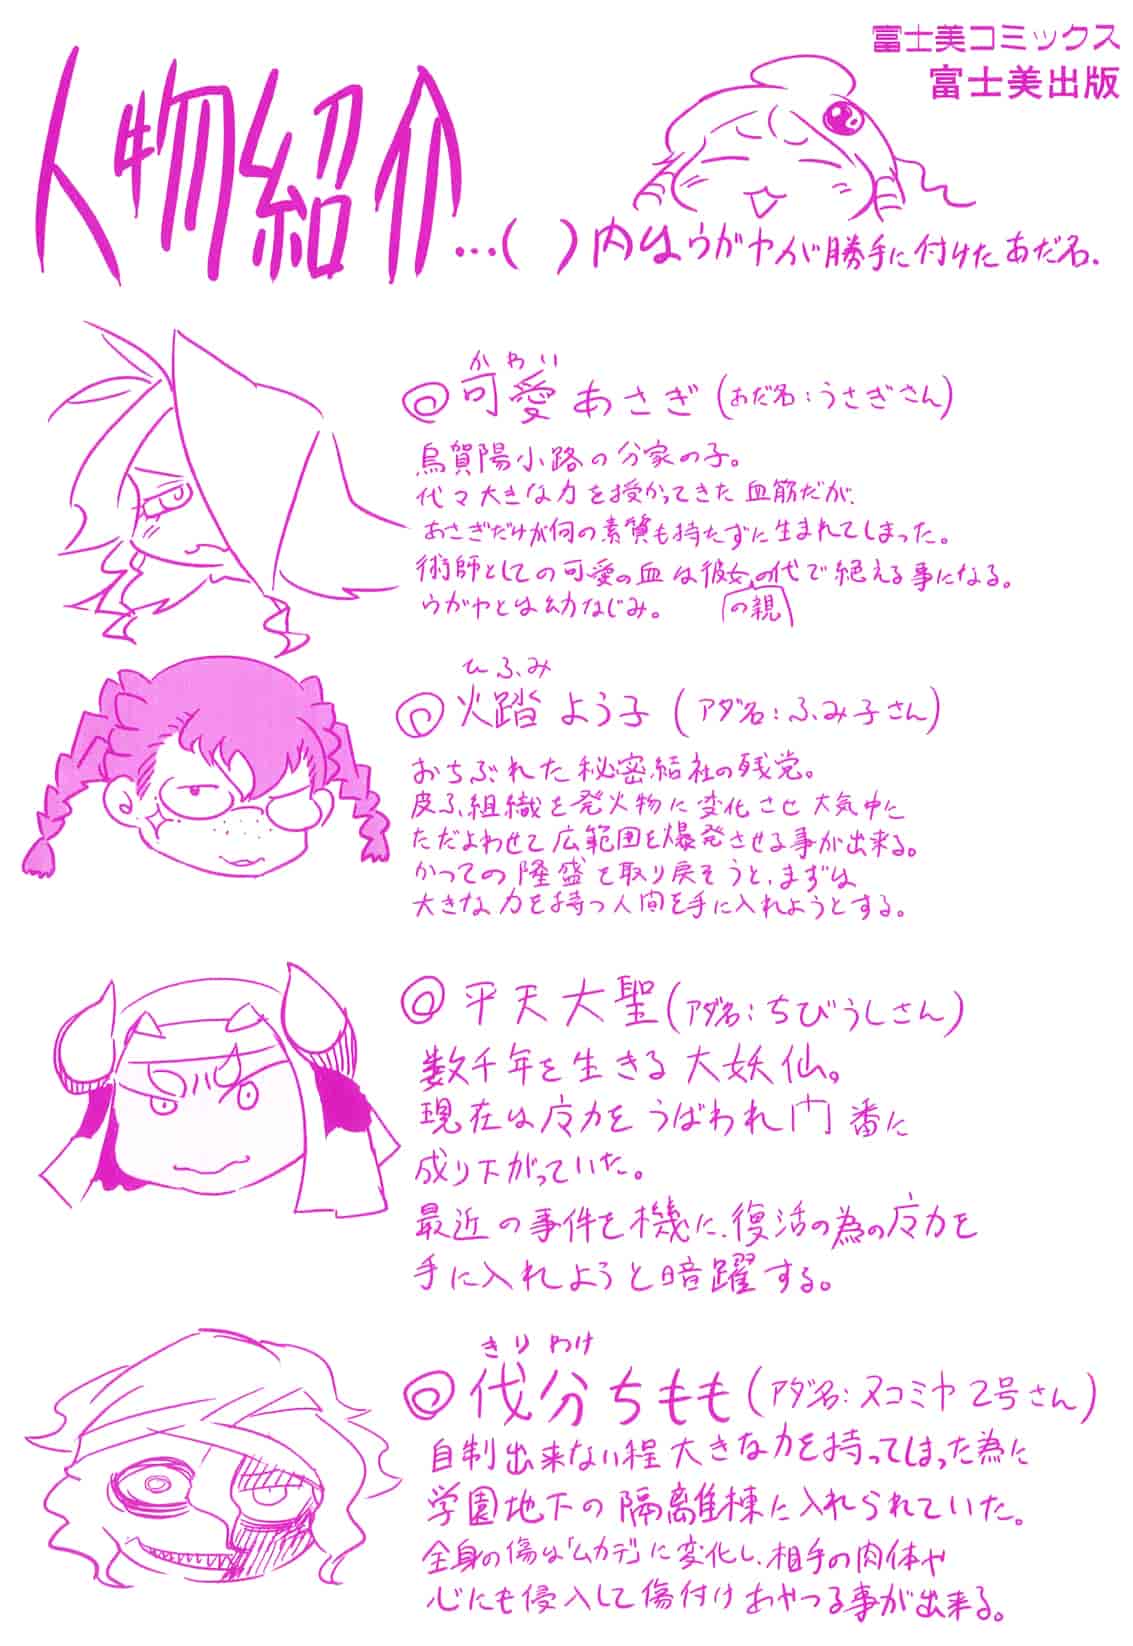 富士美コミックス
富士美出版
人物紹介…( )内はウガヤが勝手に付けたあだ名.
かわい
◎可愛あさぎ(あだ名:うさぎさん)
烏賀陽小路の分家の子。
代々大きな力を授かってきた血筋だが、
あさぎだけが何の素質も持たずに生まれてしまった。
術師としての可愛の血は彼女の代で絶える事になる。
ウガヤとは幼なじみ。
の親
ひふみ
◎火踏よう子(アダ名:ふみ子さん)
おちぶれた秘密結社の残党。
皮ふ組織を発火物に変化させ大気中に
ただよわせて広範囲を爆発させる事が出来る。
かつての隆盛を取り戻そうと、まずは
大きな力を持つ人間を手に入れようとする。
◎平天大聖(アダ名:ちびうしさん)
数千年を生きる大妖仙。
現在は力をうばわれ門番に
成り下がっていた。
最近の事件を機に、復活の為の力を
手に入れようと暗躍する。
きりわけ
◎伐分ちもも(アダ名:ヌコミヤ2号さん)
自制出来ない程大きな力を持ってしまった為に
学園地下の隔離棟に入れられていた。
全身の傷は「ムカデ」に変化し、相手の肉体や
心にも侵入して傷付けあやつる事が出来る。